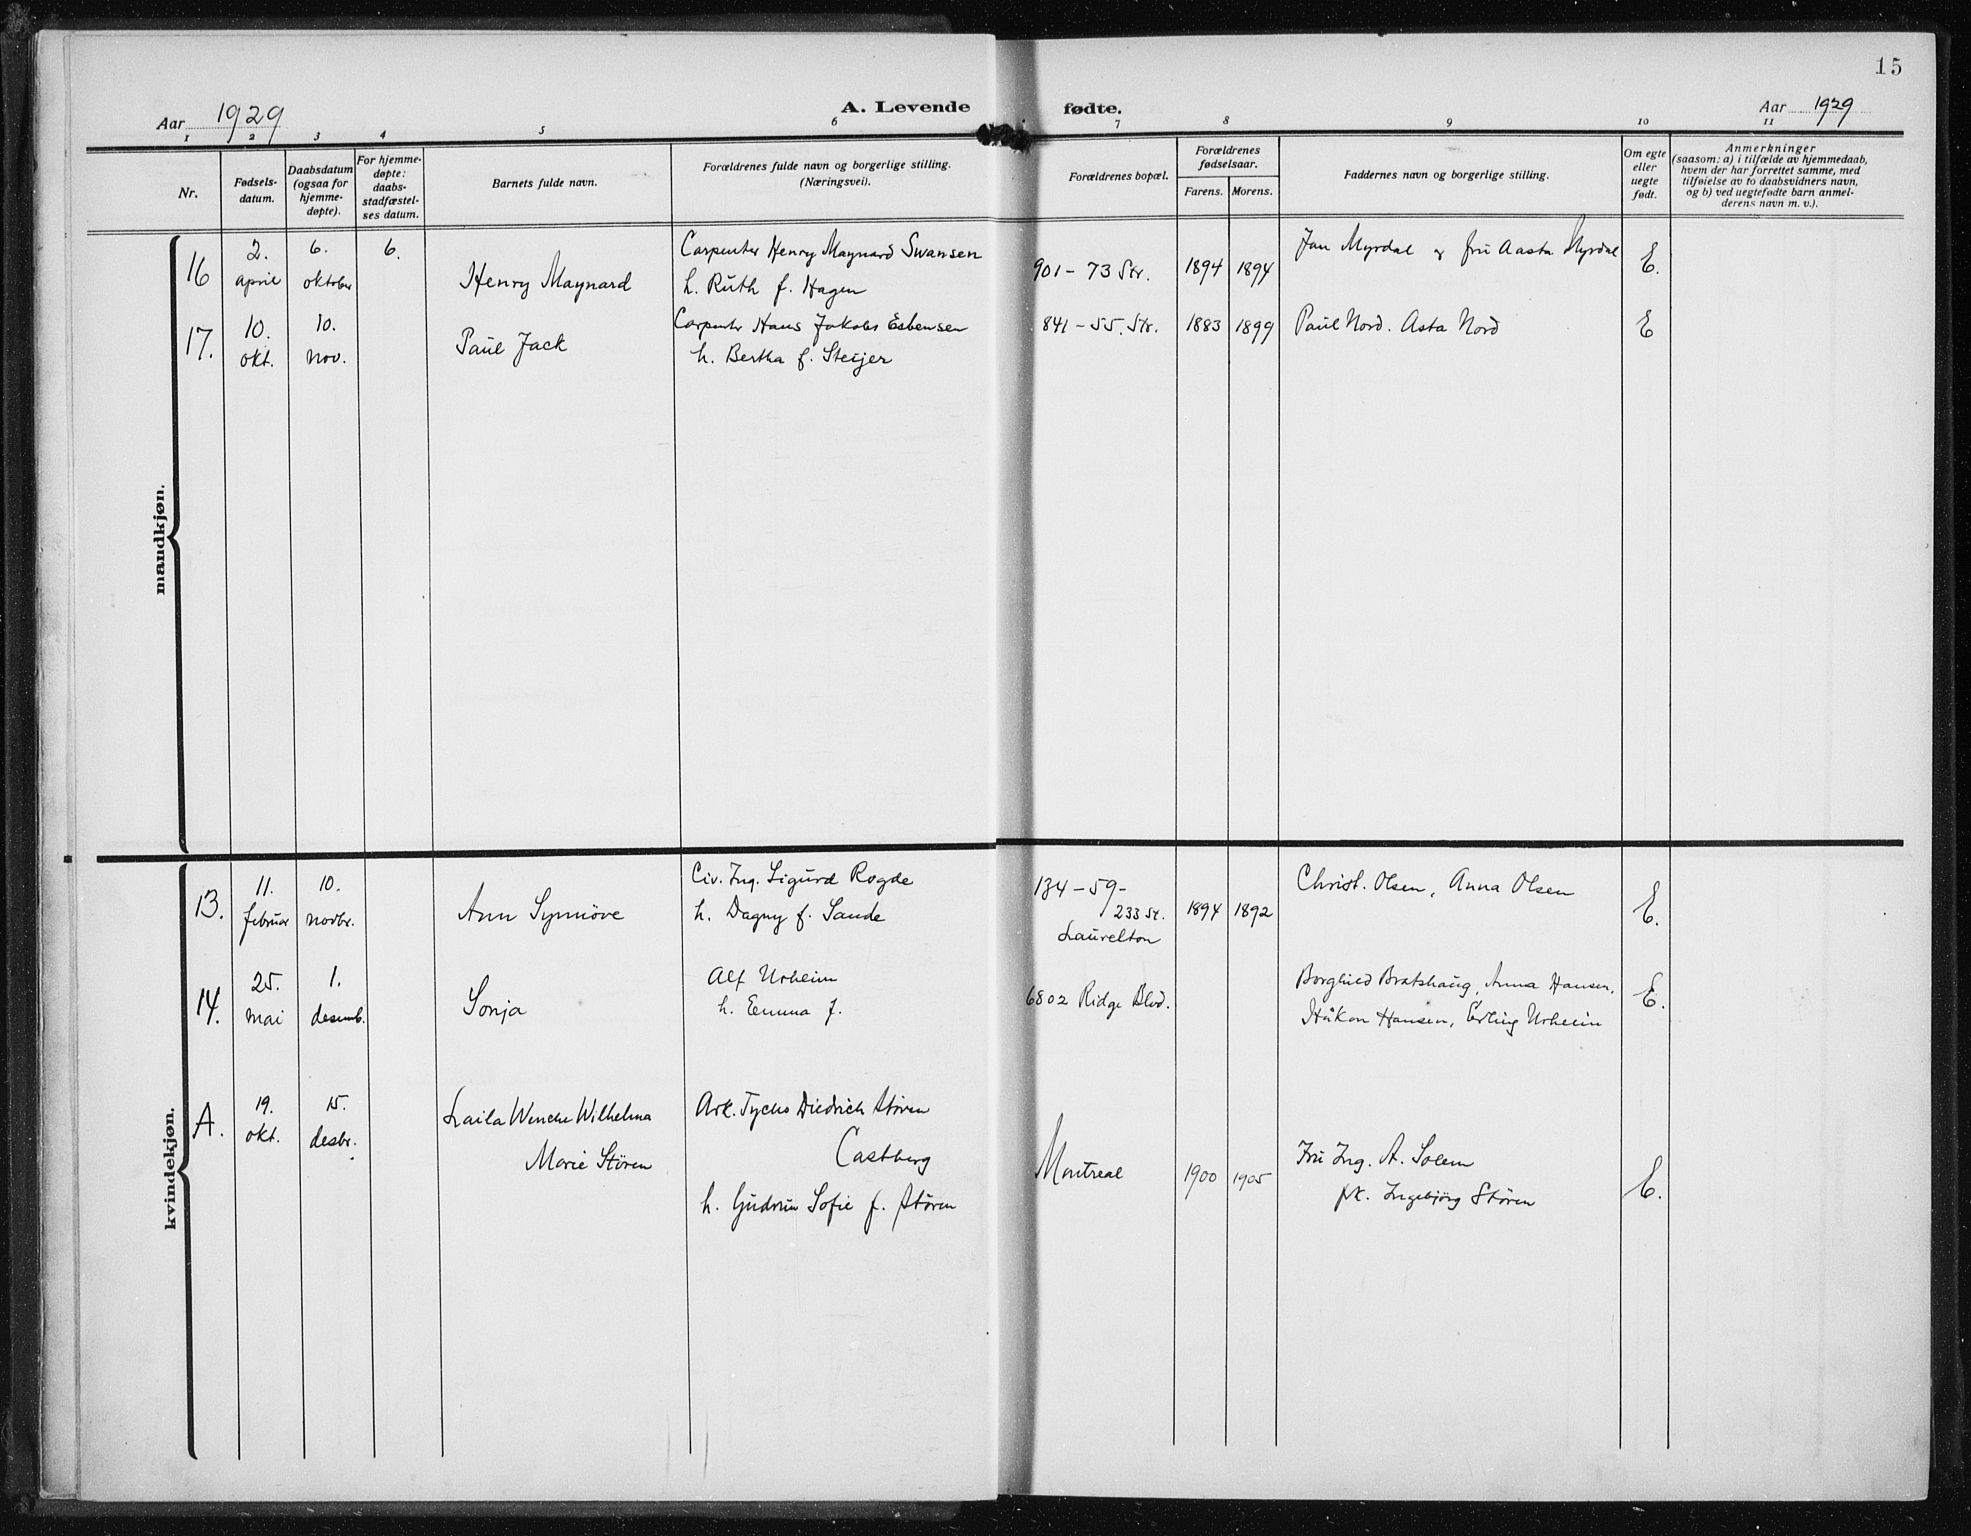 15
Aar 1929
A. Levende fødte.
Aar 1929
1 2 3 4 5 6 7 8 9 10 11
Nr.
Fødsels-
datum.
Daabsdatum
(ogsaa for
hjemme-
døpte).
For hjemme-
døpte:
daabs-
stadfæstel-
ses datum.
Barnets fulde navn.
Forældrenes fulde navn og borgerlige stilling.
(Næringsvei).
Forældrenes bopæl.
Forældrenes
fødselsaar.
Farens. Morens.
Faddernes navn og borgerlige stilling.
Om egte
eller
uegte
født.
Anmerkninger
(saasom: a) i tilfælde av hjemmedaab,
hvem der har forrettet samme, med
tilføielse av to daabsvidners navn,
og b) ved uegtefødte barn anmel-
derens navn m. v.).
mandkjøn.
16
2.
april
6.
oktober
6.
Henry Maynard
Carpenter Henry Maynard Swansen
h. Ruth f. Hagen
901 - 73 Str.
1894 1894
Jan Myrdal og fru Aasta Myrdal
E.
17.
10.
okt.
10.
nov.
Paul Jack
Carpenter Hans Jakob Esbensen
h. Bertha f. Steijer
841 - 55. Str.
1883 1899
Paul Nord. Asta Nord
E
kvindekjøn.
13.
11.
februar
10.
novbr.
Ann Synnöve
Civ. Ing. Sigurd Rogde
h. Dagny f. Sande
134 - 59 -
233 St.
Laurelton
1894 1892
Christ. Olsen, Anna Olsen
E.
14.
25.
mai
1.
desemb.
Sonja
Alf Urheim
h. Emma f.
6802 Ridge Blvd.
Borghild Bratshaug, Anna Hansen,
Håkon Hansen, Erling Urheim
E.
A.
19.
okt.
15.
desbr.
Laila Wenche Wilhelma
Marie Stören
Ark. Tycho Diedrich Stören
Castberg
h. Gudrun Sofie f. Stören
Montreal
1900 1905
Fru Ing. A. Solem
frk. Ingebjörg Stören
E.